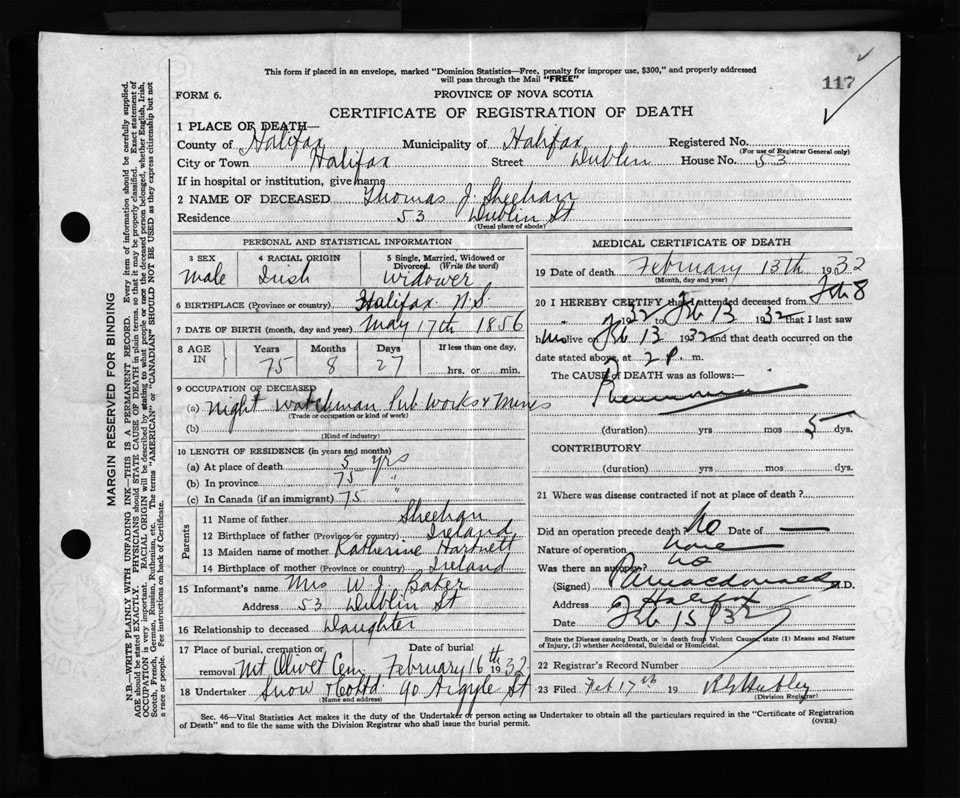 This form if placed in an envelope, marked "Dominion Statistics—Free, penalty for improper use, $300," and properly addressed
will pass through the Mail "FREE"
117
FORM 6.
PROVINCE OF NOVA SCOTIA
CERTIFICATE OF REGISTRATION OF DEATH
1 PLACE OF DEATH—
County of Halifax Municipality of Halifax Registered No.
(For use of Registrar General only)
City or Town Halifax Street Dublin House No. 53
If in hospital or institution, give name
2 NAME OF DECEASED Thomas J. Sheehan
Residence 53 Dublin St
(Usual place of abode)
PERSONAL AND STATISTICAL INFORMATION
3 SEX 4 RACIAL ORIGIN 5 Single, Married, Widowed or
Divorced. (Write the word)
Male Irish Widower
6 BIRTHPLACE (Province or country) Halifax N.S.
7 DATE OF BIRTH (month, day and year) May 17th 1856
8 AGE IN Years Months Days If less than one day,
75 8 27 hrs. or min.
9 OCCUPATION OF DECEASED
(a) Night Watchman Pub Works & Mines
(Trade or occupation or kind of work)
(b)
(Kind of industry)
10 LENGTH OF RESIDENCE (in years and months)
(a) At place of death 5 yrs
(b) In province 75 "
(c) In Canada (if an immigrant) 75 "
Parents
11 Name of father Sheehan
12 Birthplace of father (Province or country) Ireland
13 Maiden name of mother Katherine Hartnett
14 Birthplace of mother (Province or country) Ireland
15 Informant's name Mrs W. J. Baker
Address 53 Dublin St
16 Relationship to deceased Daughter
17 Place of burial, cremation or Date of burial
removal Mt Olivet Cem. February 16th 1932
18 Undertaker Snow & Co Ltd 90 Argyle St
(Name and address)
MEDICAL CERTIFICATE OF DEATH
19 Date of death February 13th 1932
(Month, day and year)
20 I HEREBY CERTIFY that I attended deceased from Feb 8
1932 to Feb 13 1932 that I last saw
him alive on Feb 13 1932 and that death occurred on the
date stated above, at 2 P. m.
The CAUSE of DEATH was as follows:—
Pneumonia
(duration) yrs mos 5 dys.
CONTRIBUTORY
(duration) yrs mos dys.
21 Where was disease contracted if not at place of death?
Did an operation precede death? No Date of —
Nature of operation none
Was there an autopsy? no
(Signed) Macdonald M.D.
Address Halifax
Date Feb 15/32
State the Disease causing Death, or in death from Violent Causes, state (1) Means and Nature
of Injury, (2) whether Accidental, Suicidal or Homicidal.
22 Registrar's Record Number
23 Filed Feb 17th 19
(Division Registrar)
Sec. 46—Vital Statistics Act makes it the duty of the Undertaker or person acting as Undertaker to obtain all the particulars required in the "Certificate of Registration
of Death" and to file the same with the Division Registrar who shall issue the burial permit. (OVER)
MARGIN RESERVED FOR BINDING
N.B.—WRITE PLAINLY WITH UNFADING INK—THIS IS A PERMANENT RECORD. Every item of information should be carefully supplied.
AGE should be stated EXACTLY. PHYSICIANS should STATE CAUSE OF DEATH in plain terms, so that it may be properly classified. Exact statement of
OCCUPATION is very important. RACIAL ORIGIN will be described by stating to what people or race the deceased person belonged, whether English, Irish,
Scotch, French, German, Russian, Ruthenian, etc. The terms "AMERICAN" or "CANADIAN" SHOULD NOT BE USED as they express citizenship but not
a race or people. Fee instructions on back of Certificate.